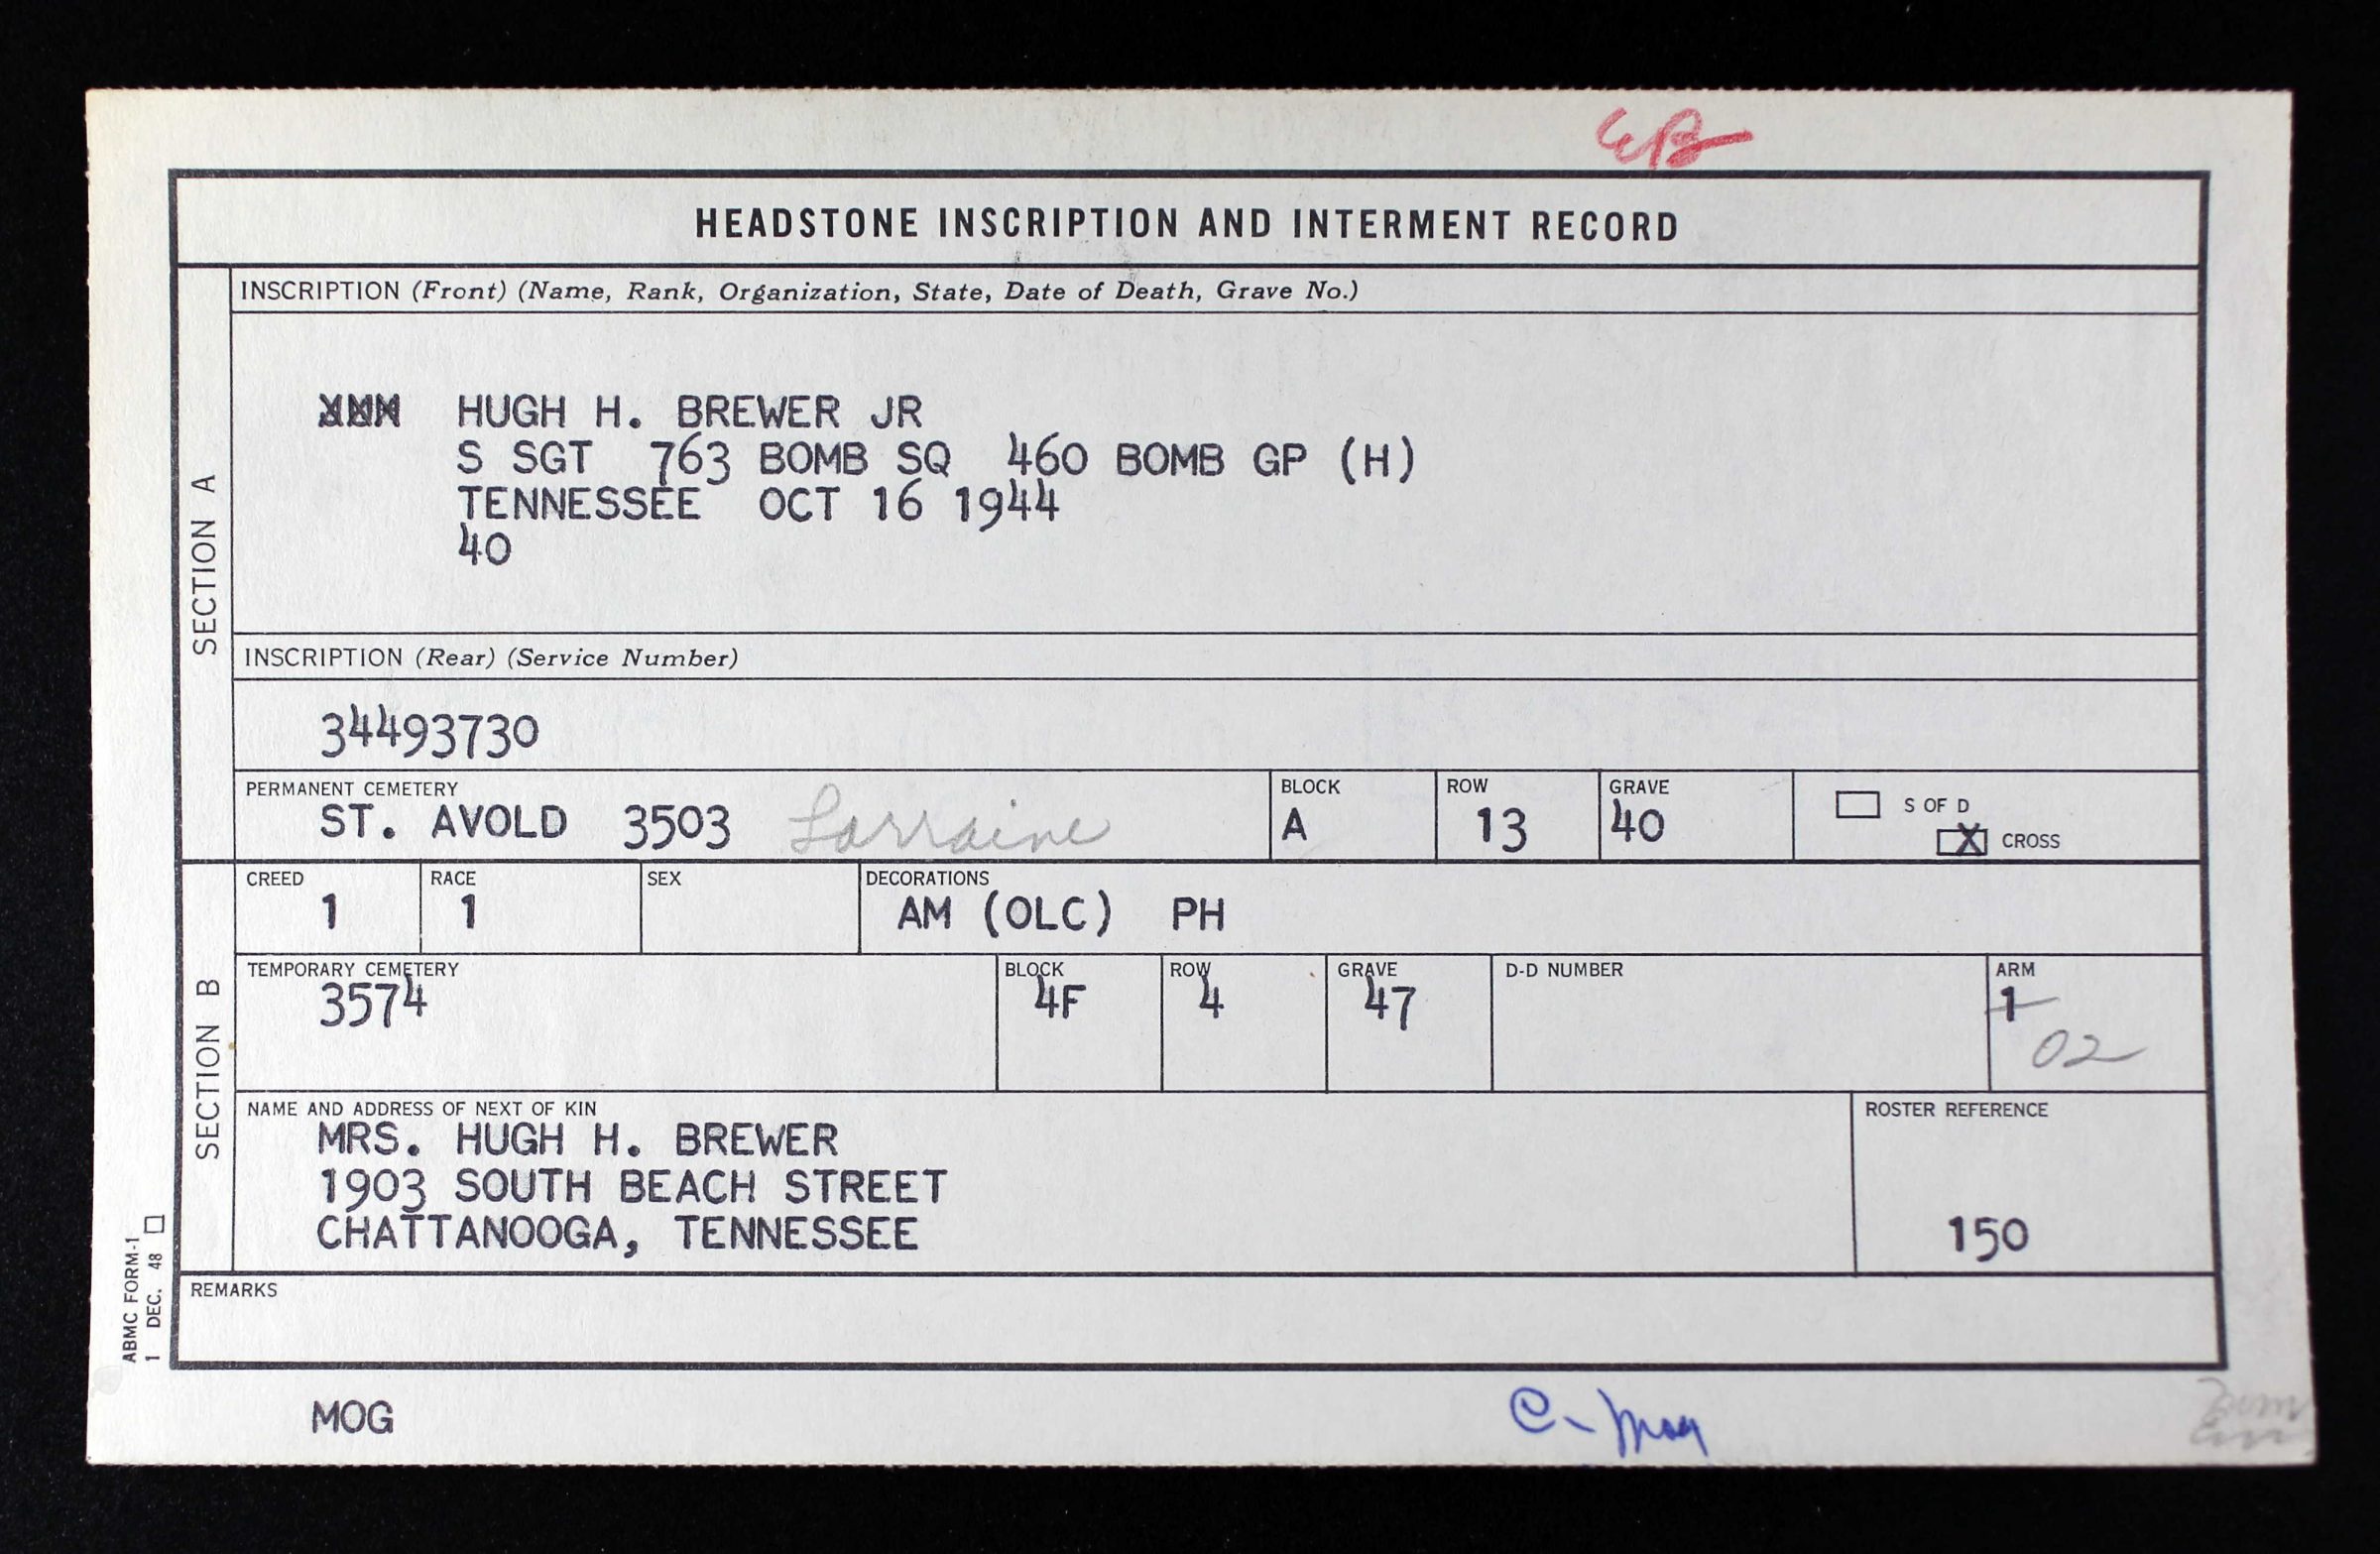 EB
HEADSTONE INSCRIPTION AND INTERMENT RECORD
SECTION A
INSCRIPTION (Front) (Name, Rank, Organization, State, Date of Death, Grave No.)
HUGH H. BREWER JR
S SGT 763 BOMB SQ 460 BOMB GP (H)
TENNESSEE OCT 16 1944
40
INSCRIPTION (Rear) (Service Number)
34493730
PERMANENT CEMETERY BLOCK ROW GRAVE
ST. AVOLD 3503 Lorraine A 13 40
S OF D
X CROSS
SECTION B
CREED RACE SEX DECORATIONS
1 1 AM (OLC) PH
TEMPORARY CEMETERY BLOCK ROW GRAVE D-D NUMBER ARM
3574 4F 4 47 1
02
NAME AND ADDRESS OF NEXT OF KIN ROSTER REFERENCE
MRS. HUGH H. BREWER
1903 SOUTH BEACH STREET
CHATTANOOGA, TENNESSEE 150
REMARKS
ABMC FORM-1
1 DEC. 48
MOG C-Mog